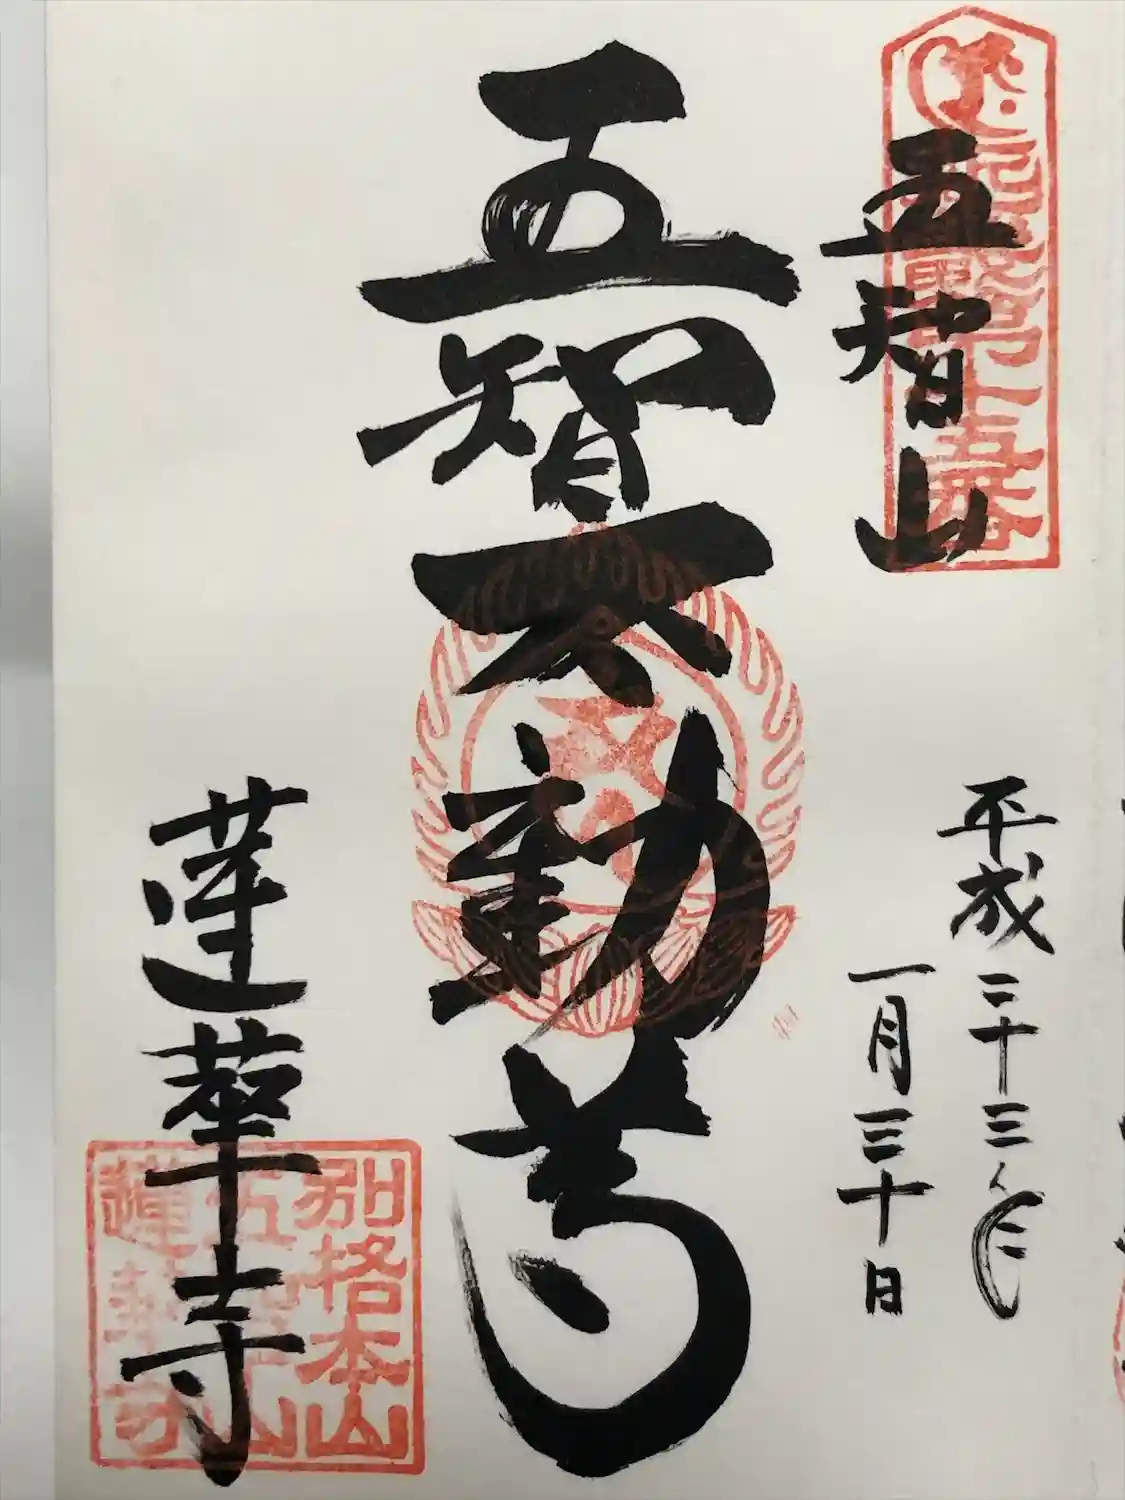 五智山
平成二十三年
一月三十日
五智不動尊
蓮華寺
別格本山
五智山
蓮華寺